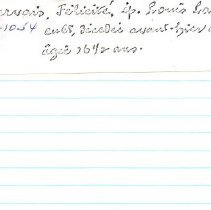 ervais, Félicité, ép. Louis La
-10-54 enbt, décédée avant-hier
âgée 76 1/2 ans.